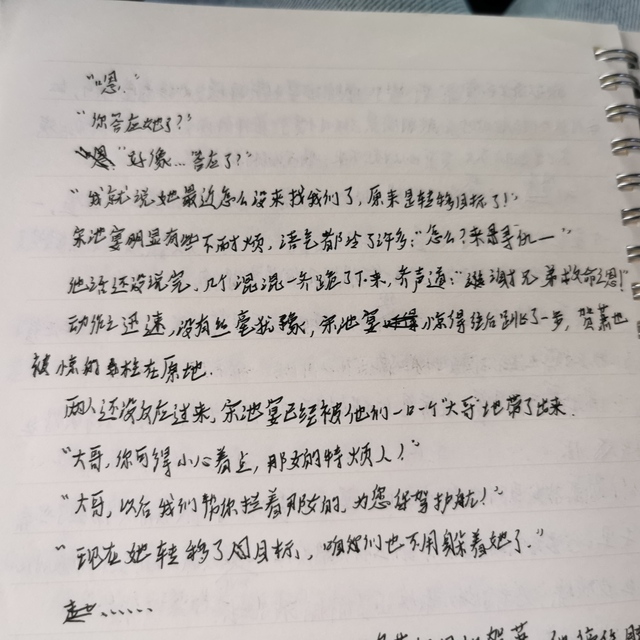 "嗯."
"你答应她了?"
"嗯" 好像...答应了?"
"我就说她最近怎么没来找我们了,原来是转移目标了!"
宋池宴明显有些不耐烦,语气都冷了许多:"怎么?来寻仇—"
他话还没说完,几个混混一齐跪了下来,齐声道:"谢兄弟救命之恩!"
动作之迅速,没有丝毫犹豫,宋池宴惊得往后跳了一步,贺萧也
被惊的 柱在原地.
两人还没反应过来,宋池宴已经被他们一口一个"大哥"地带了出来.
"大哥,你可得小心着点,那女的特烦人!"
"大哥,以后我们帮你拦着那女的,为您保驾护航!"
"现在她转移了目标,咱们也不用躲着她了."
......